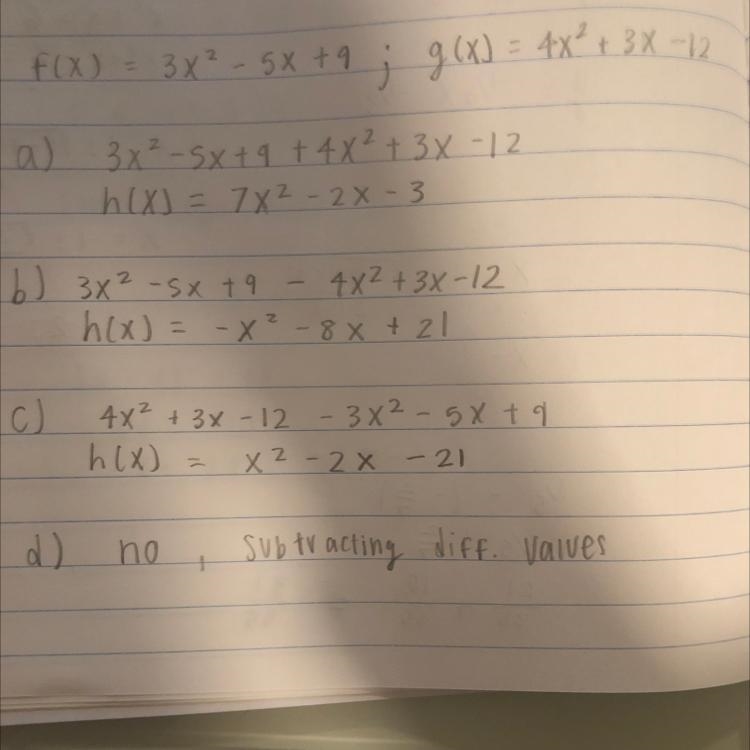 f(x) = 3x² - 5x + 9 ; g(x) = 4x² + 3x - 12
a) 3x² - 5x + 9 + 4x² + 3x - 12
h(x) = 7x² - 2x - 3
b) 3x² - 5x + 9 - 4x² + 3x - 12
h(x) = -x² - 8x + 21
c) 4x² + 3x - 12 - 3x² - 5x + 9
h(x) = x² - 2x - 21
d) no, subtracting diff. values